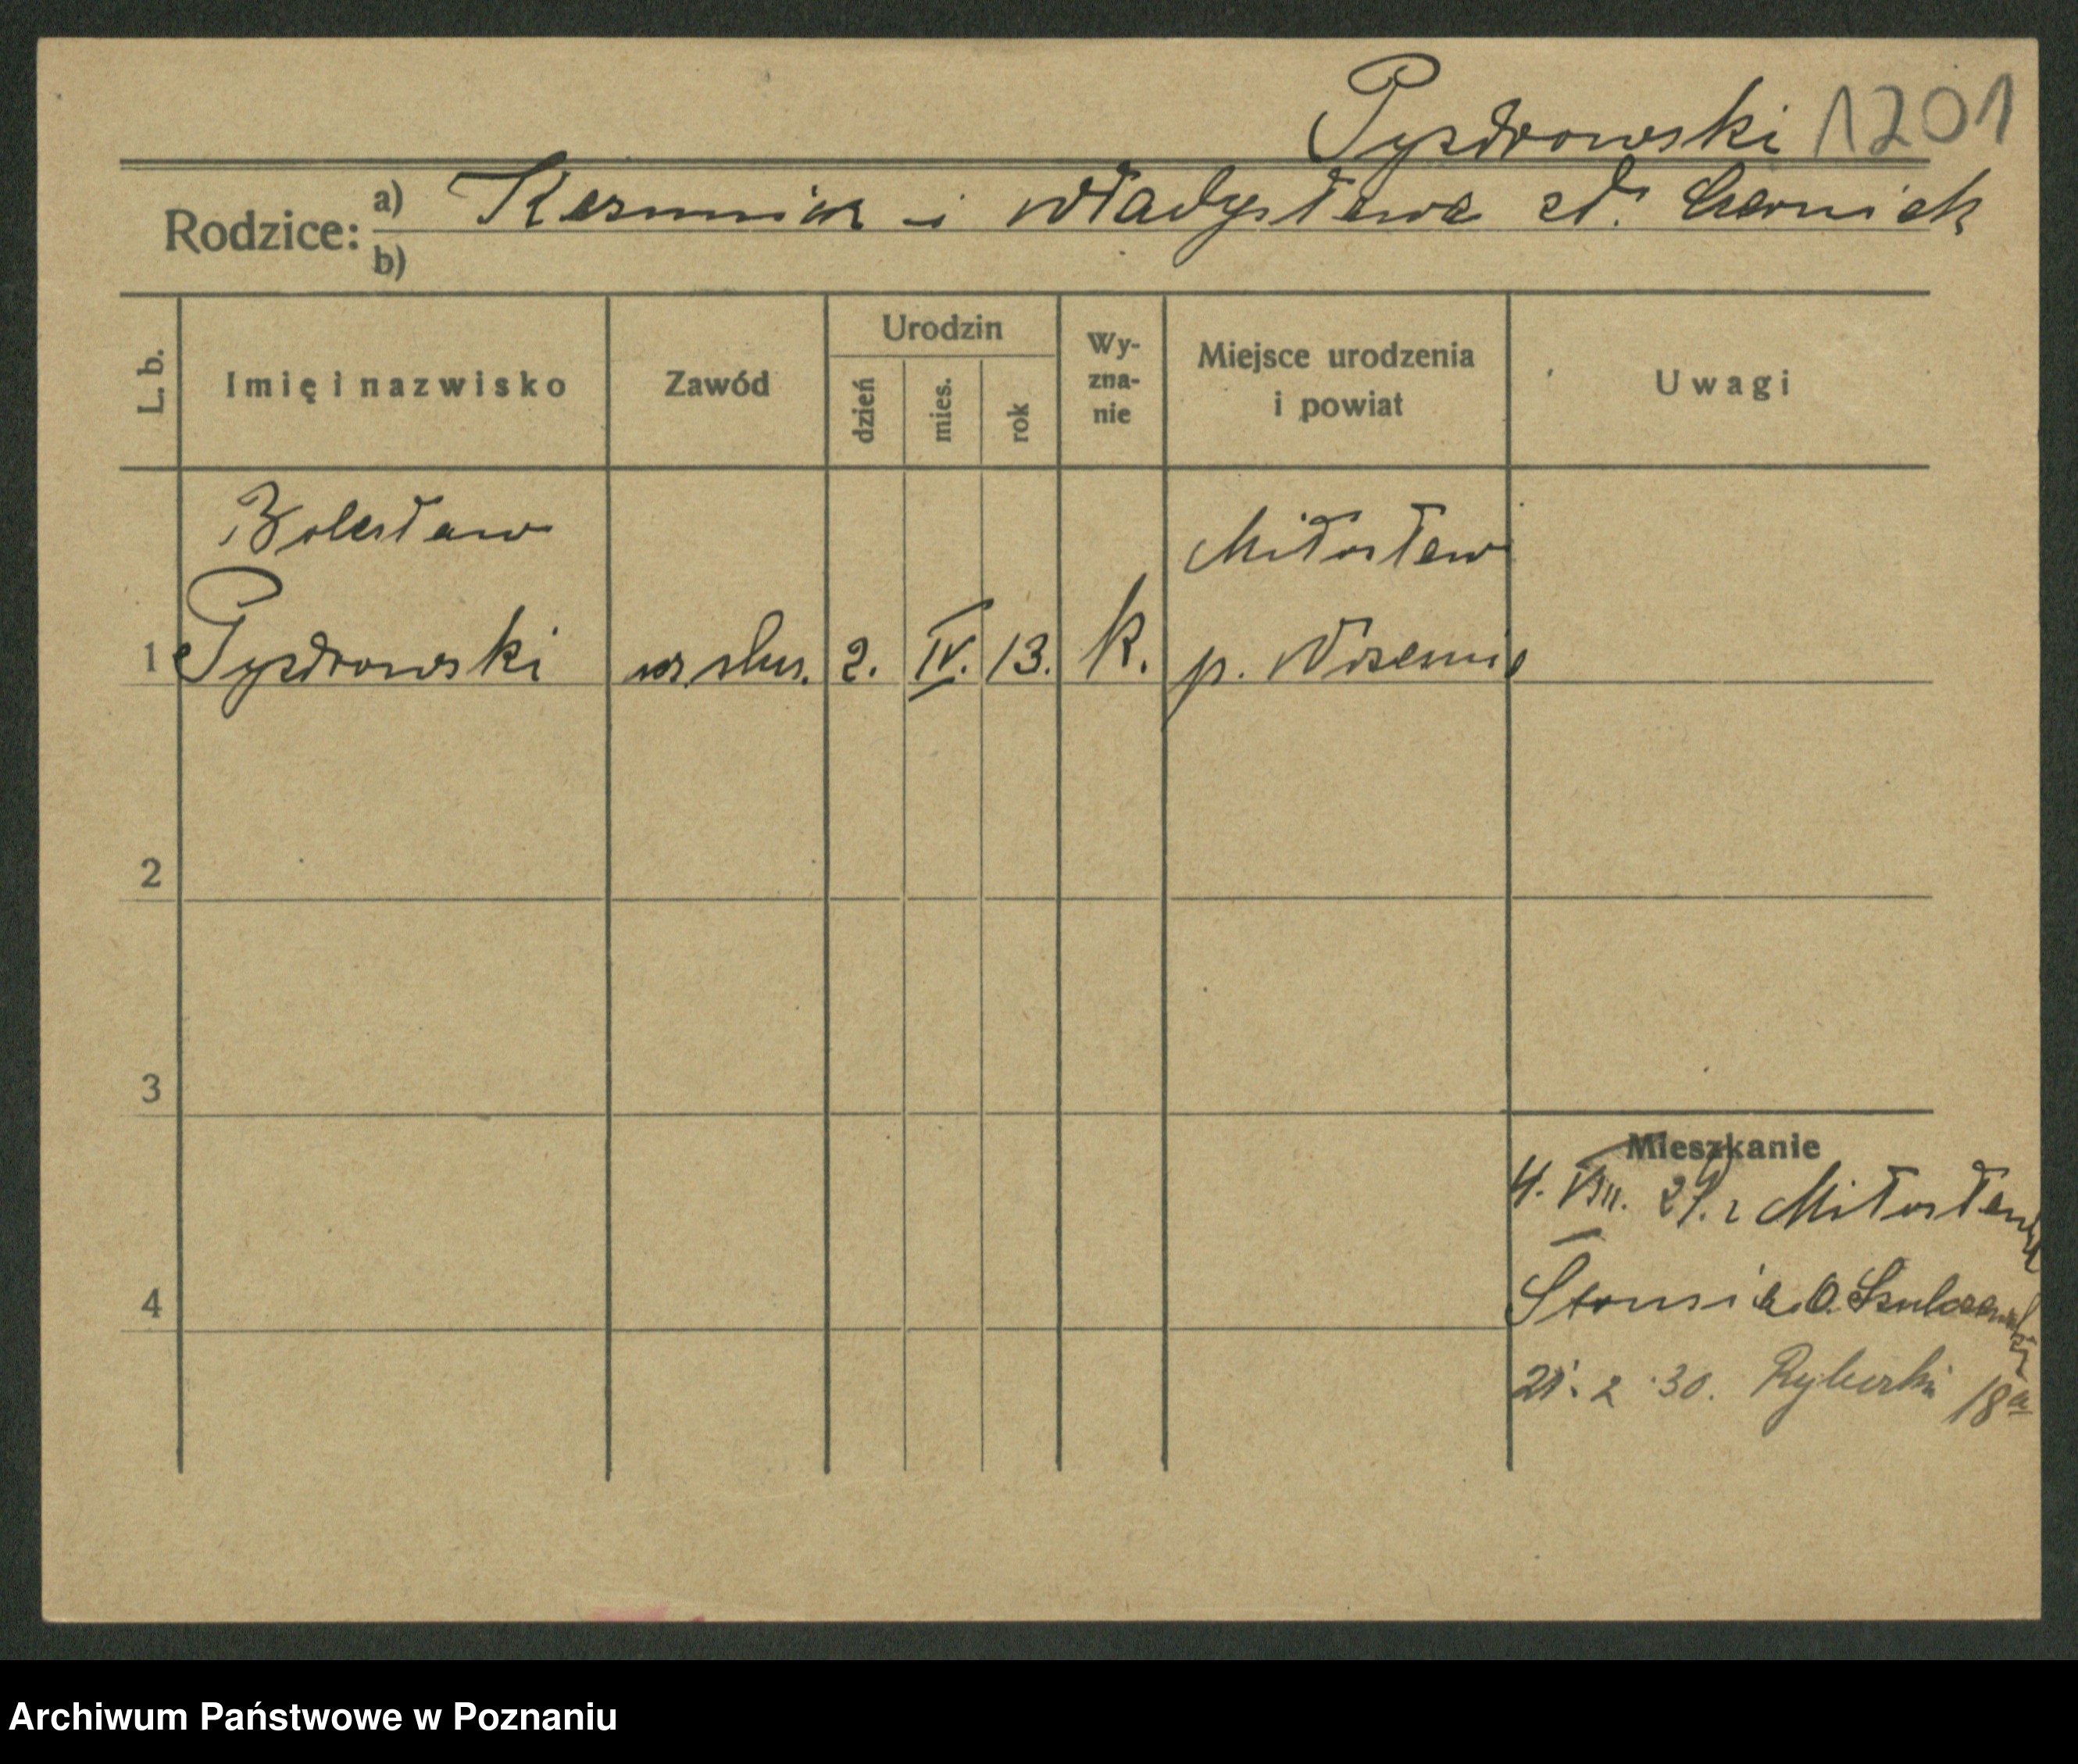 Pyzdrowski 1201
Rodzice: a) Kazimierz i Władysława zd. Czerniak
b)
L. b.
Imię i nazwisko
Zawód
Urodzin
dzień
mies.
rok
Wy-
zna-
nie
Miejsce urodzenia
i powiat
Uwagi
Bolesław
Miłosław
1 Pyzdrowski ucz. ślus. 2. IV. 13. k. p. Września
2
3
Mieszkanie
4. VIII. 29. z Miłosława
4
21. 2 30. Rybaki 18a
Archiwum Państwowe w Poznaniu